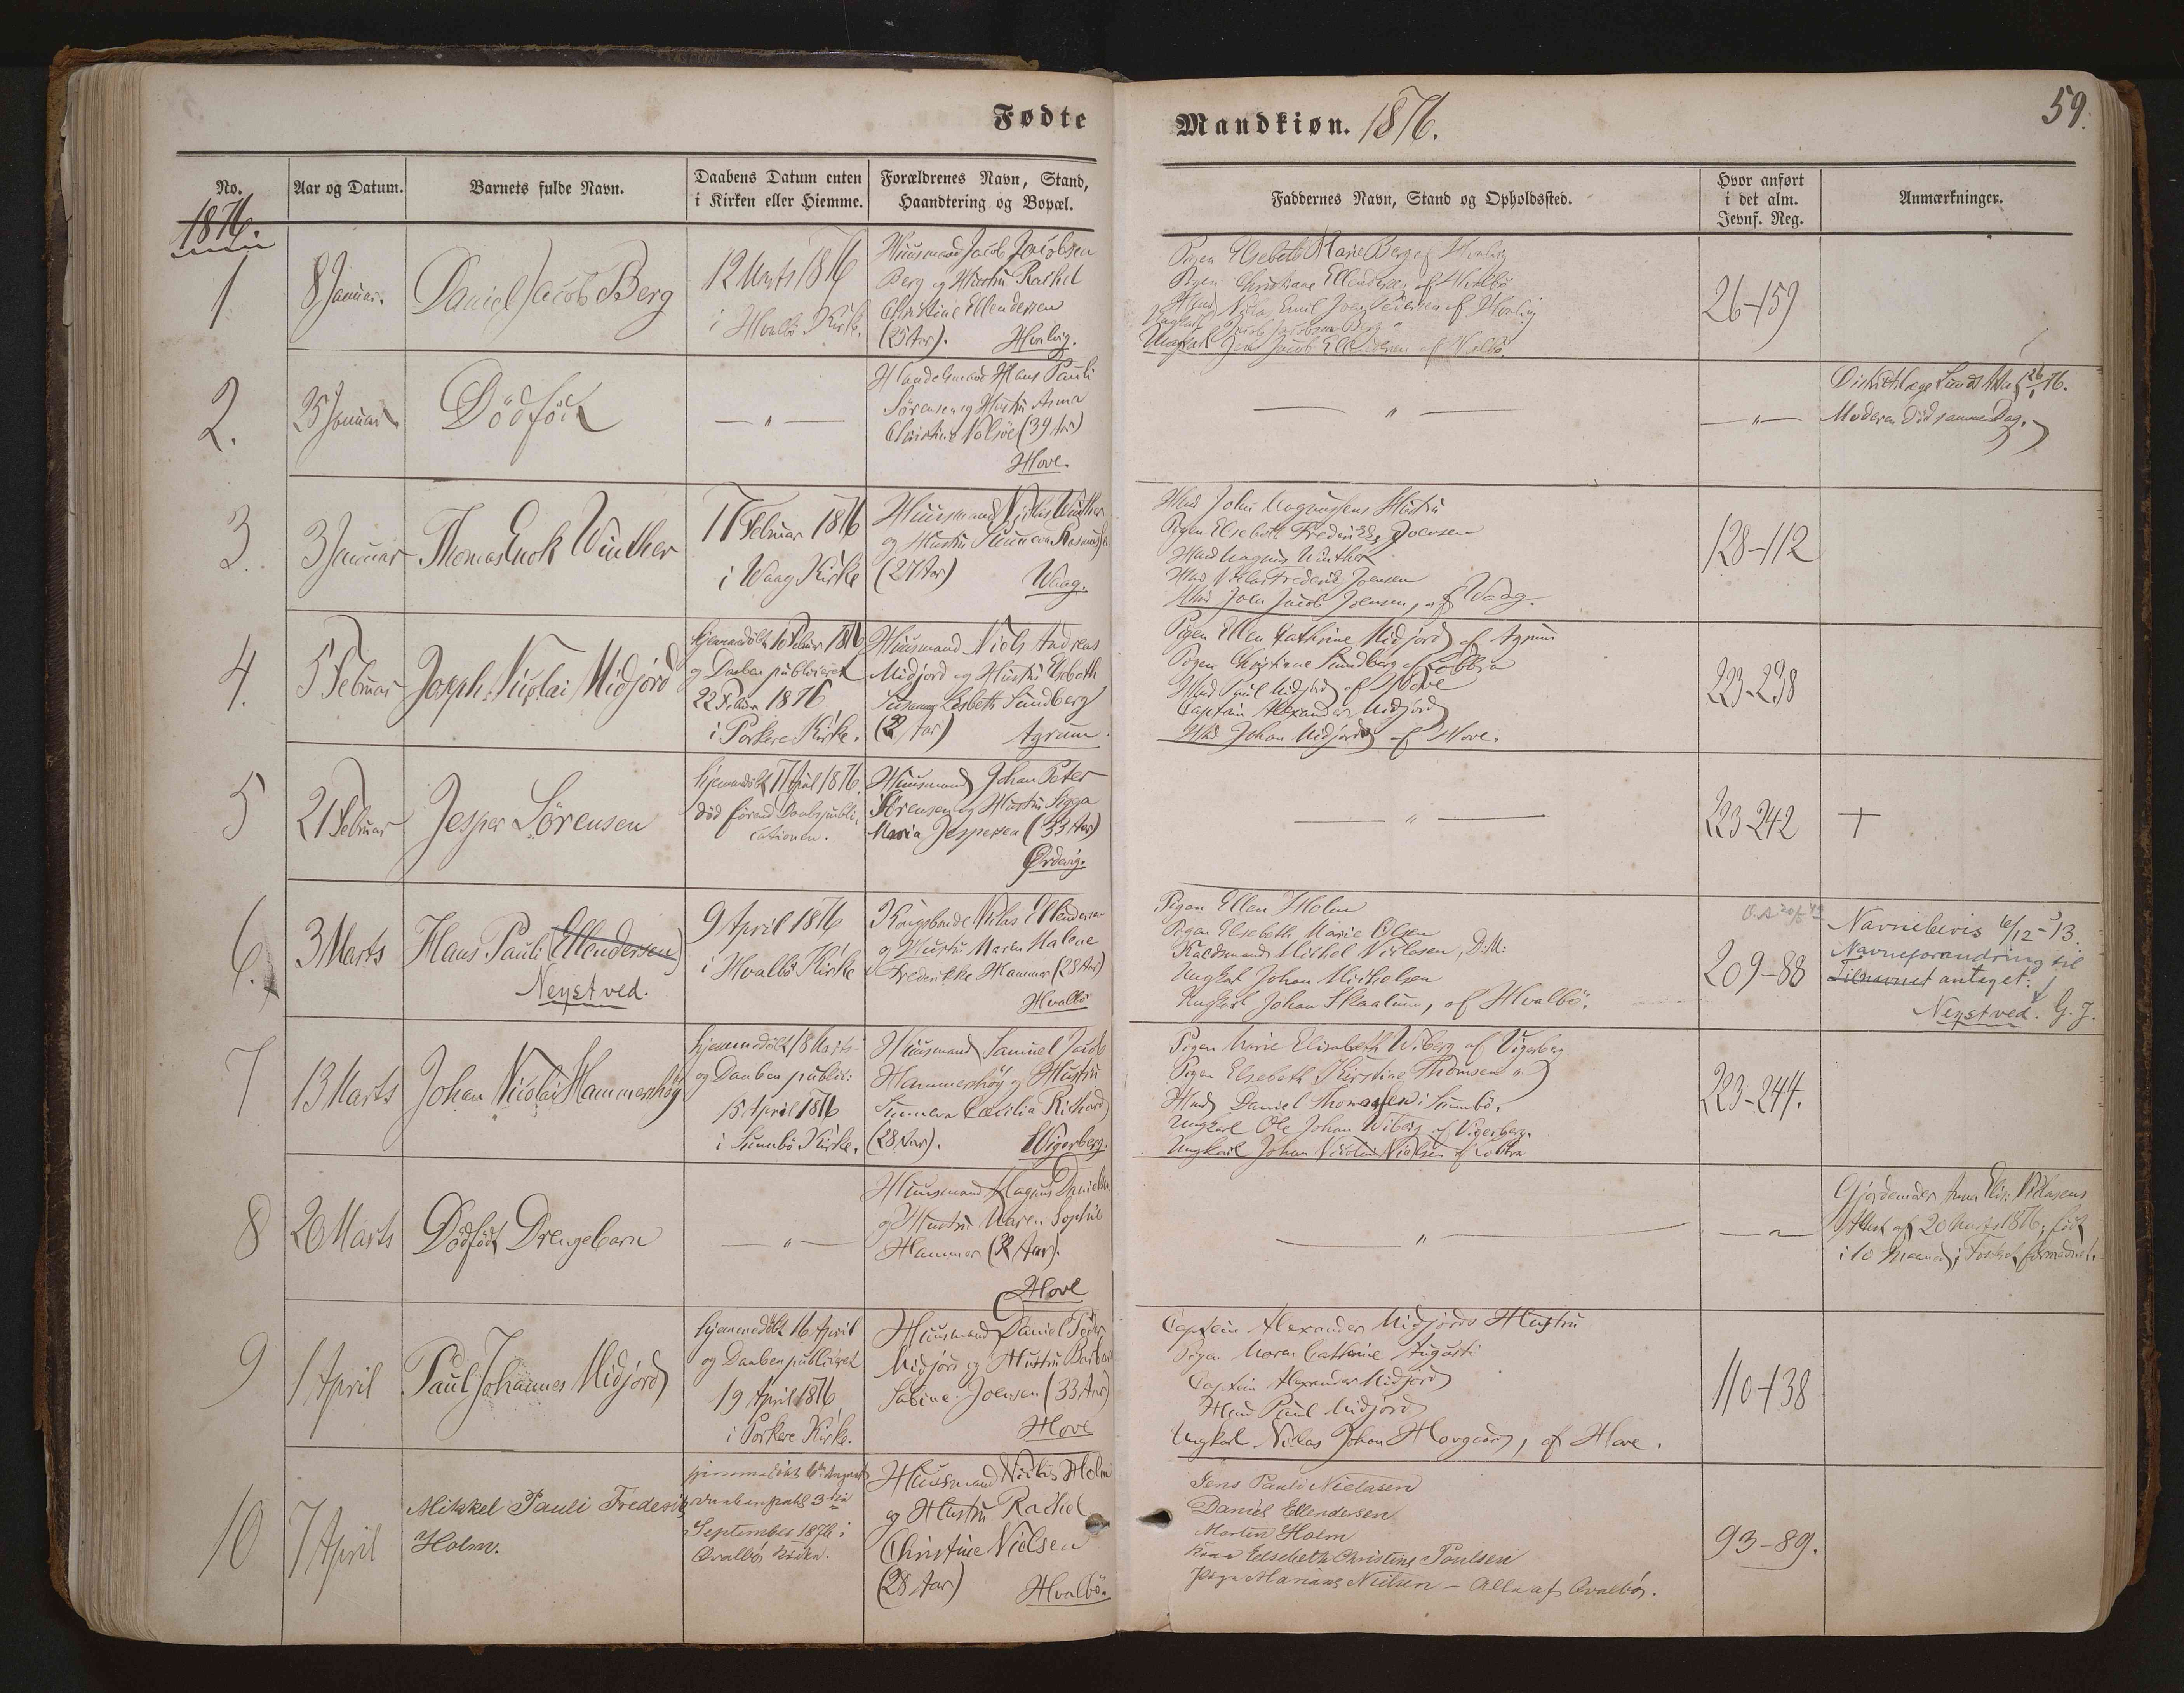 Fødte
Mandkiøn. 1876.
59.
No.
Aar og Datum.
Barnets fulde Navn.
Daabens Datum enten
i Kirken eller Hiemme.
Forældrenes Navn, Stand,
Haandtering og Bopæl.
Faddernes Navn, Stand og Opholdssted.
Hvor anført
i det alm.
Jevnf. Reg.
Anmærkninger.
1876.
1
8 Januar.
Daniel Jacob Berg
12 Marts 1876
i Hvalbö Kirke.
Huusmand Jacob Jacobsen
Berg og Hustru Rachel
Christine Ellendersen
(25 Aar). Hvalvig.
Pigen Elsebeth Marie Berg af Hvalvig
Pigen Christiane Ellendersen af Hvalbö
Emil af Hvalvig
Ungkarl Jacob Jacobsen Berg "
Ungkarl Jens Jacob Ellendersen af Hvalbö
26-159
2.
25 Januar
Dödföd
— " —
Handelsmand Hans Pauli
Sörensen og Hustru Anna
Christine Nolsöe (39 Aar)
Hove.
— " —
— " —
Districtslæge 26/1 76.
Moderen död samme Dag.
3.
3 Januar
Thomas Enok Winther
17 Februar 1876
i Waag Kirke
Huusmand Niclas Winther
og Hustru Sunneva Rasmussen
(27 Aar) Waag.
Mads John Magnussens Hustru
Pigen Elsebeth Fredrikke Joensen
Mand Magnus Winther
Mand Niclas Frederik Joensen
Mand Joen Jacob Joensen, af Waag.
128-112
4.
5 Februar
Joseph Nicolai Midjord
hjemmedöbt 6 Februar 1876
og Daaben publiceret
22 Februar 1876
i Porkere Kirke.
Huusmand Niels Andreas
Midjord og Hustru Elsebeth
Susanne Lisbeth Sundberg
Aar) Agrum.
Pigen Ellen Cathrine Midjord af Agrum
Pigen Christiane Sundberg af Lobbra
Mand Poul Midjord af Hove
Captain Alexander Midjord
Mand Johan Midjord af Hove.
223-238
5
21 Februar
Jesper Sörensen
hjemmedöbt 17 April 1876.
död förend Daabspubli-
cationen.
Huusmand Johan Peter
Sörensen og Hustru Sigga
Maria Jespersen (33 Aar)
Ördevig.
— " —
223-242
+
6.
3 Marts
Hans Pauli (Ellendersen)
Neystved.
9 April 1876
i Hvalbö Kirke
Kongsbonde Niclas Ellendersen
og Hustru Maren Malene
Fredrikke Hammer (28 Aar)
Hvalbö
Pigen Ellen Holm
Pigen Elsebeth Marie Olsen
Michel Niclasen, D.M.
Ungkarl Johan Michelsen
Ungkarl Johan Skaalum, af Hvalbö.
209-88
Navnebevis 6/12-13.
Navneforandring til
Tilnavnet antaget:
Neystved. G. J.
7
13 Marts
Johan Nicolai Hammershöy
hjemmedöbt 18 Marts
og Daaben public:
15 April 1876
i Sumbö Kirke.
Huusmand Samuel Jacob
Hammershöy og Hustru
Sunneva Cecilia Richard
(28 Aar). Wigerberg.
Pigen Marie Elisabeth Wiberg af Vigerberg
Pigen Elsebeth Kirstine Thomsen "
Mand Daniel Thomasen i Sumbö.
Ungkarl Ole Johan Wiberg af Vigerberg.
Ungkarl Johan Nicolai Nielsen af Lobbra
223-244.
8
20 Marts
Dödfödt Drengebarn
— " —
Huusmand Magnus Danielsen
og Hustru Maren Sophie
Hammer (32 Aar).
Hove
— " —
— " —
Gjordemoder Anna Elis: Niclasens
Attest af 20 Marts 1876, födt
i 10 Maaned,
9
1 April
Paul Johannes Midjord
hjemmedöbt 16 April
og Daaben publiceret
19 April 1876
i Porkere Kirke.
Huusmand Daniel Peder
Midjord og Hustru Barbara
Sabine Joensen (33 Aar)
Hove
Captain Alexander Midjords Hustru
Pigen Maren Cathrine Augusti
Captain Alexander Midjord
Mand Paul Midjord
Ungkarl Niclas Johan Hovgaard, af Hove.
110-138
10
7 April
Mikkel Pauli Frederik
Holm.
hjemmedöbt 6te August
Daaben publ 3die
September 1876 i
Qvalbø Kirke.
Huusmand Niclas Holm
og Hustru Rachel
Christine Nielsen
(28 Aar) Hvalbö.
Jens Pauli Nielasen
Daniel Ellendersen
Morten Holm
Kone Elsebeth Christine Poulsen
Pige Mariane Nielsen – Alle af Qvalbø.
93-89.